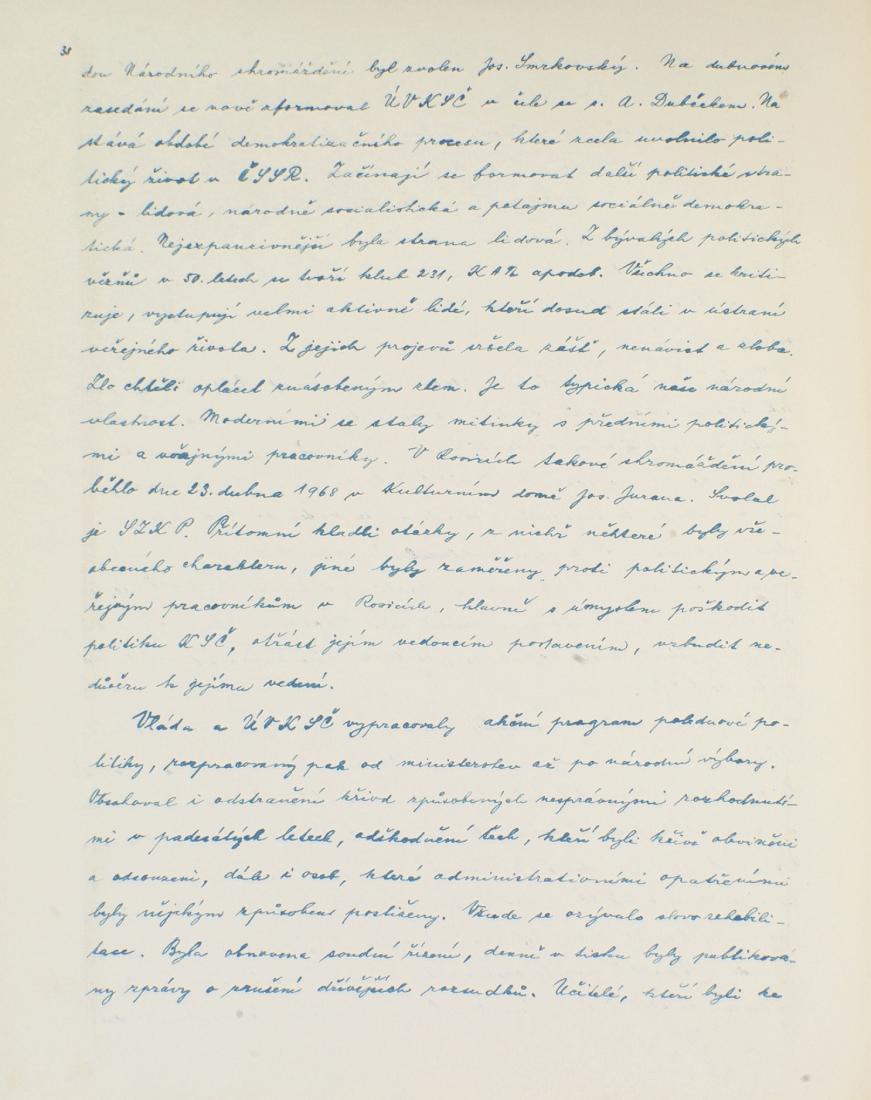 38
dou Národního shromáždění byl zvolen Jos. Smrkovský. Na dubnovém
zasedání se nově zformoval ÚVKSČ v čele se s. A. Dubčekem. Na
stává období demokratizačního procesu, které zcela uvolnilo poli-
tický život v ČSSR. Začínají se formovat další politické stra-
ny - lidová, národně socialistická a potajmu sociálně demokra-
tická. Nejexpanzivnější byla strana lidová. Z bývalých politických
vězňů v 50. letech se tvoří klub 231, KAN apodob. Všechno se kriti-
zuje, vystupují velmi aktivně lidé, kteří dosud stáli v ústraní
veřejného života. Z jejich projevů sršela zášť, nenávist a zloba.
Zlo chtěli oplácet znásobeným zlem. Je to typická naše národní
vlastnost. Moderními se staly mítinky s předními politický-
mi a vojnými pracovníky. V Rosicích takové shromáždění pro-
běhlo dne 23. dubna 1968 v Kulturním domě Jos. Jurana. Svolal
je SZKP. Přítomní kladli otázky, z nichž některé byly vše-
obecného charakteru, jiné byly zaměřeny proti politickým a ve-
řejným pracovníkům v Rosicích, hlavně s úmyslem poškodit
politiku KSČ, otřást jejím vedoucím postavením, vzbudit ne-
důvěru k jejímu vedení.
Vláda a ÚVKSČ vypracovaly akční program polednové po-
litiky, rozpracovaný pak od ministerstev až po národní výbory.
Obsahoval i odstranění křivd způsobených nesprávnými rozhodnutí-
mi v padesátých letech, odškodnění těch, kteří byli křivě obviněni
a odsouzeni, dále i osob, které administrativními opatřeními
byly nějakým způsobem postiženy. Všude se ozývalo slovo rehabili-
tace. Byla obnovena soudní řízení, denně v tisku byly publiková-
ny zprávy o zrušení dřívějších rozsudků. Učitelé, kteří byli ke